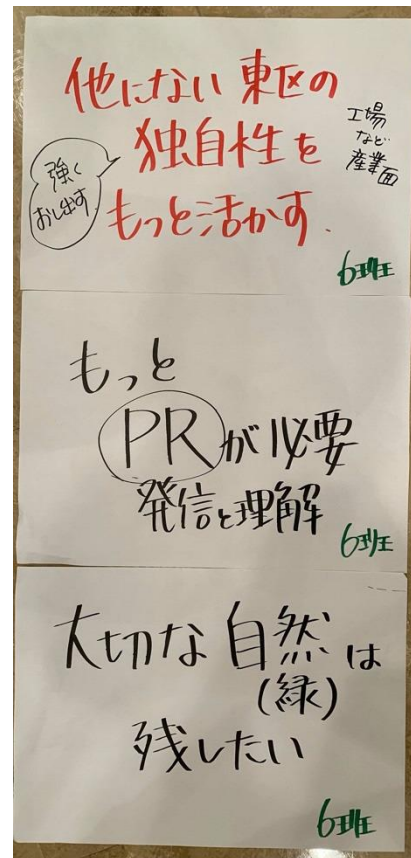 他にない東区の
独自性を
もっと活かす.
強く
おし出す
工場
など
産業面
6班
もっと
PRが必要
発信と理解
6班
大切な自然は
(緑)
残したい
6班